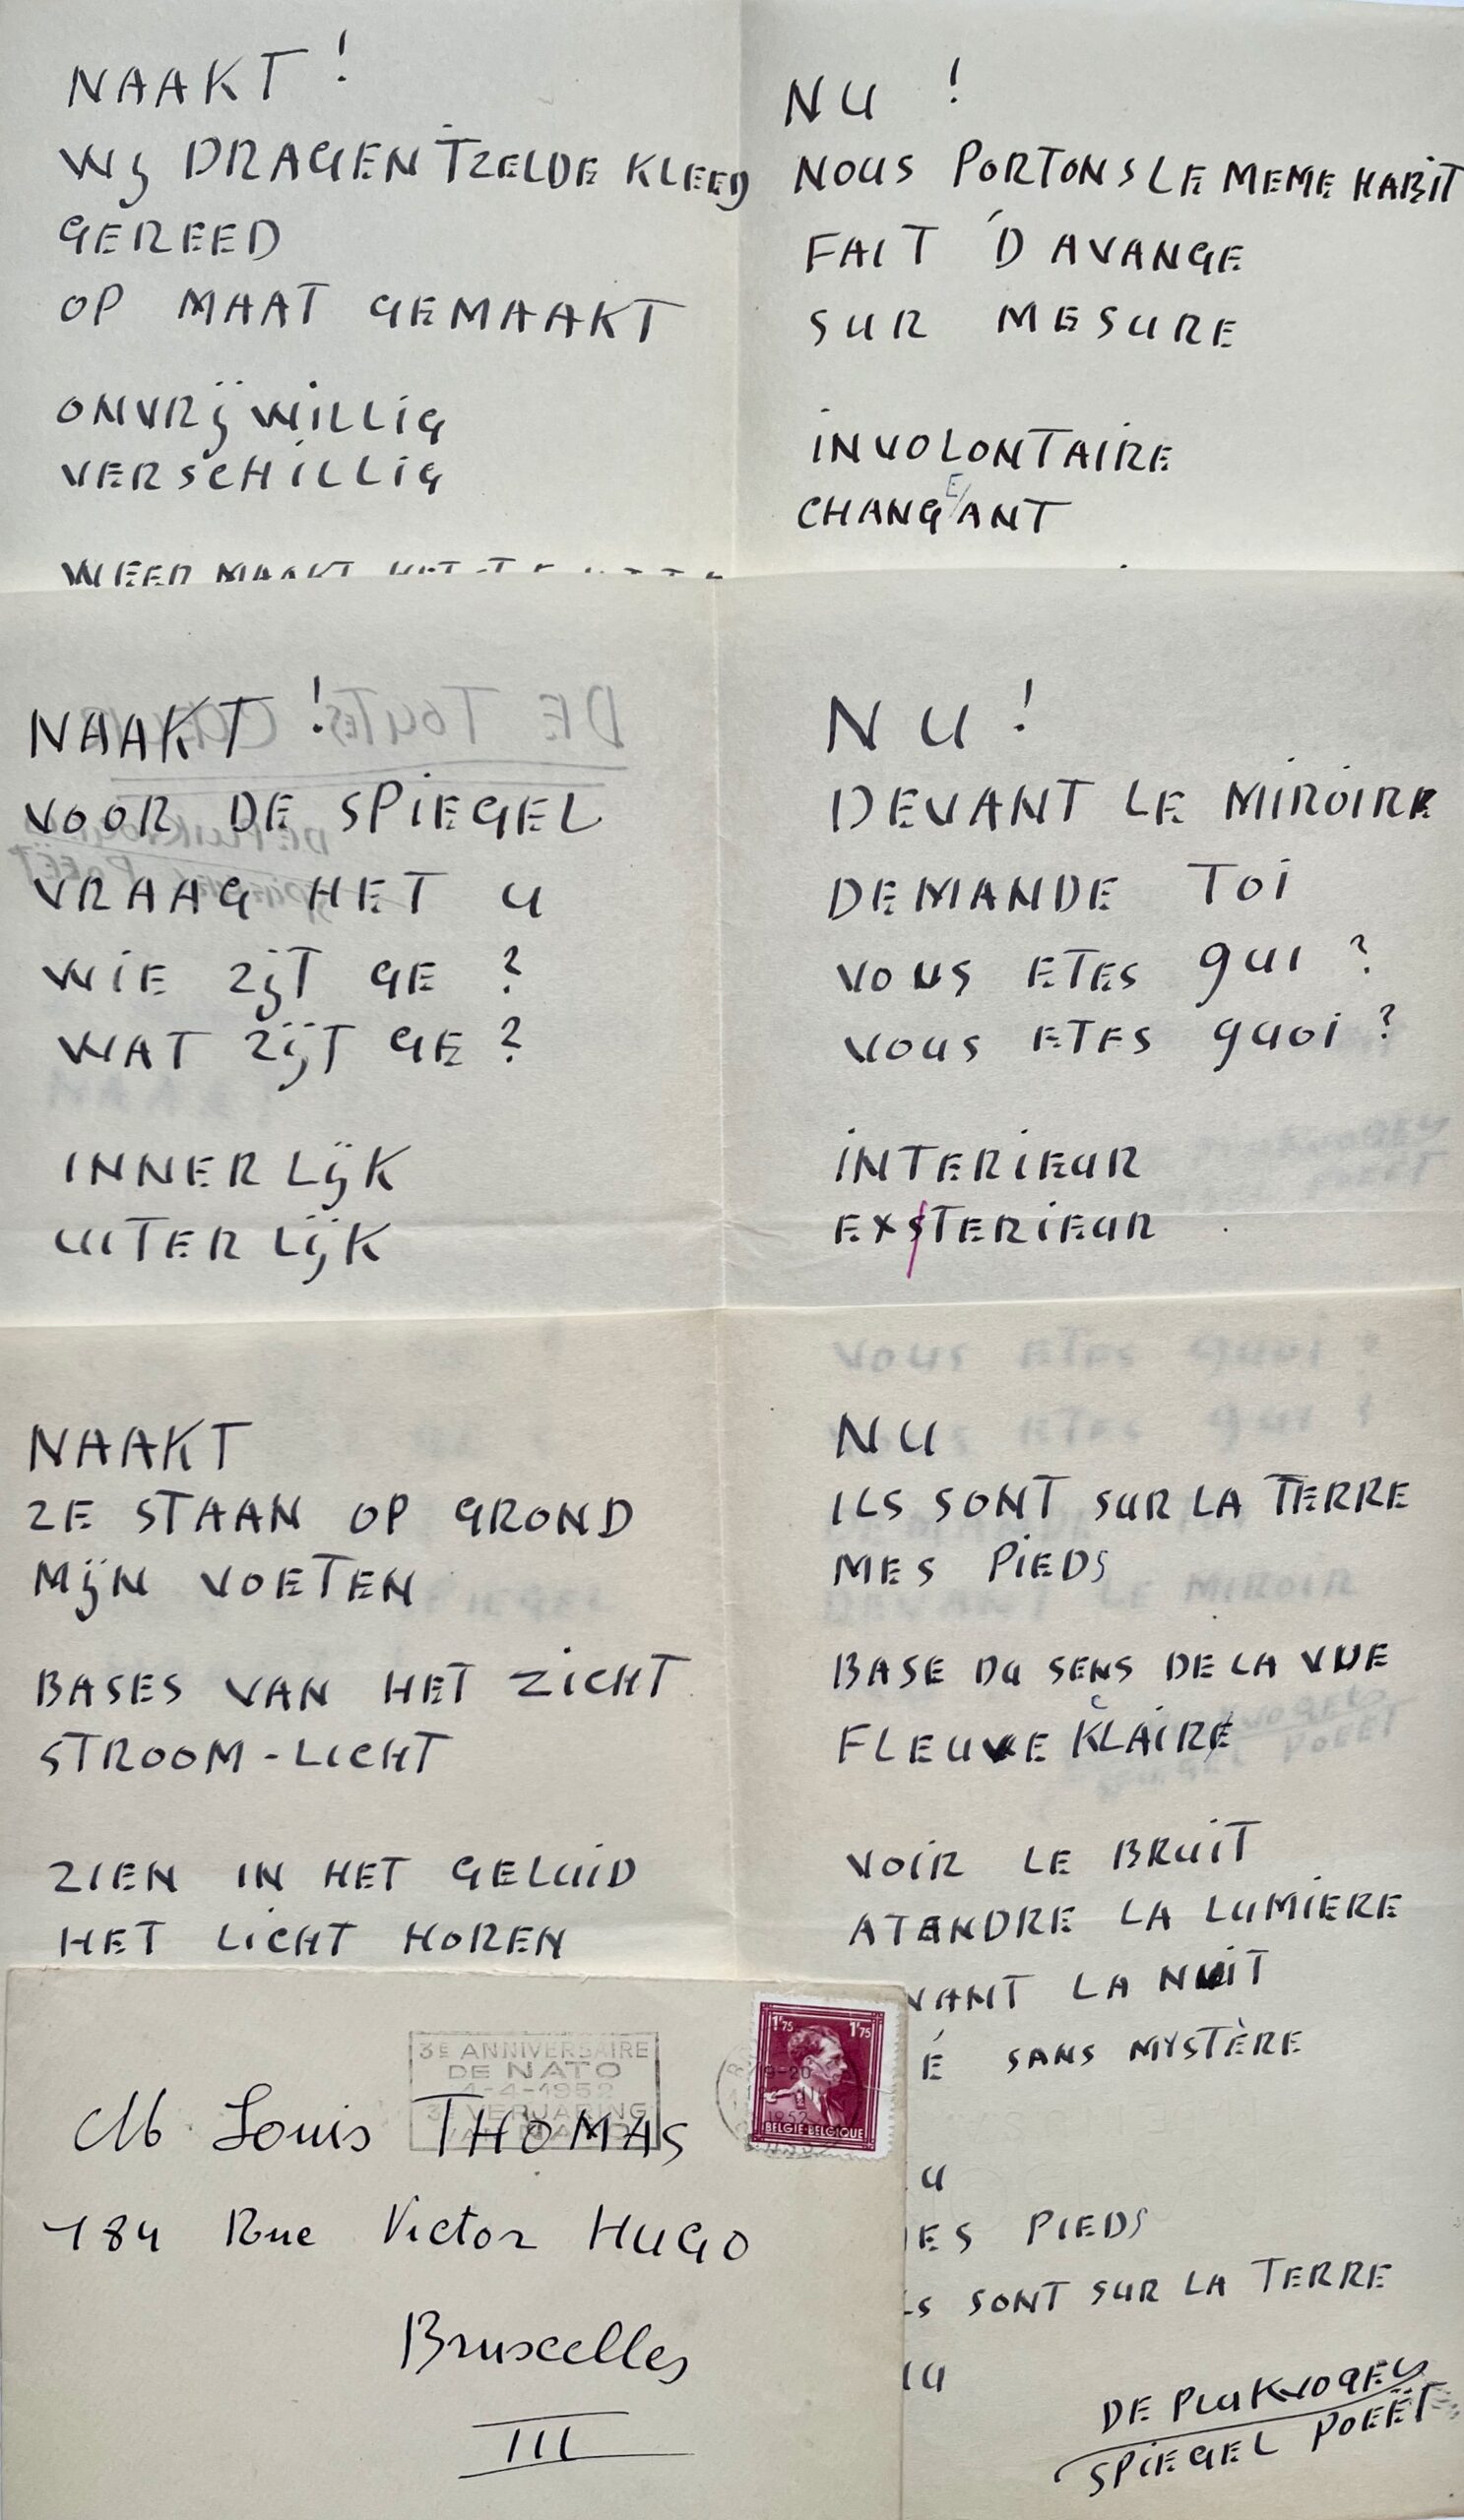 NAAKT !
WIJ DRAGEN TZELDE KLEED
GEREED
OP MAAT GEMAAKT
ONVRIJWILLIG
VERSCHILLIG
WEER MAAKT HET
NU !
NOUS PORTONS LE MEME HABIT
FAIT D'AVANGE
SUR MESURE
INVOLONTAIRE
CHANGEANT
NAAKT !
VOOR DE SPIEGEL
VRAAG HET U
WIE ZIJT GE ?
WAT ZIJT GE ?
INNERLIJK
UITERLIJK
DE TOUTES
NU !
DEVANT LE MIROIRE
DEMANDE TOI
VOUS ETES QUI ?
VOUS ETES QUOI ?
INTERIEUR
EXSTERIEUR
NAAKT
ZE STAAN OP GROND
MIJN VOETEN
BASES VAN HET ZICHT
STROOM-LICHT
ZIEN IN HET GELUID
HET LICHT HOREN
NU
ILS SONT SUR LA TERRE
MES PIEDS
BASE DU SENS DE LA VUE
C
FLEUVE KLAIRE
VOIR LE BRUIT
ATENDRE LA LUMIERE
VANT LA NUIT
É SANS MYSTÈRE
U
ES PIEDS
LS SONT SUR LA TERRE
DE PLUKVOGEL
SPIEGEL POEËT
3E ANNIVERSAIRE
DE NATO
4-4-1952
3E VERJARING
1'75 1'75
19-20
1952
BELGIE-BELGIQUE
M. Louis THOMAS
184 Rue Victor HUGO
Bruxelles
III